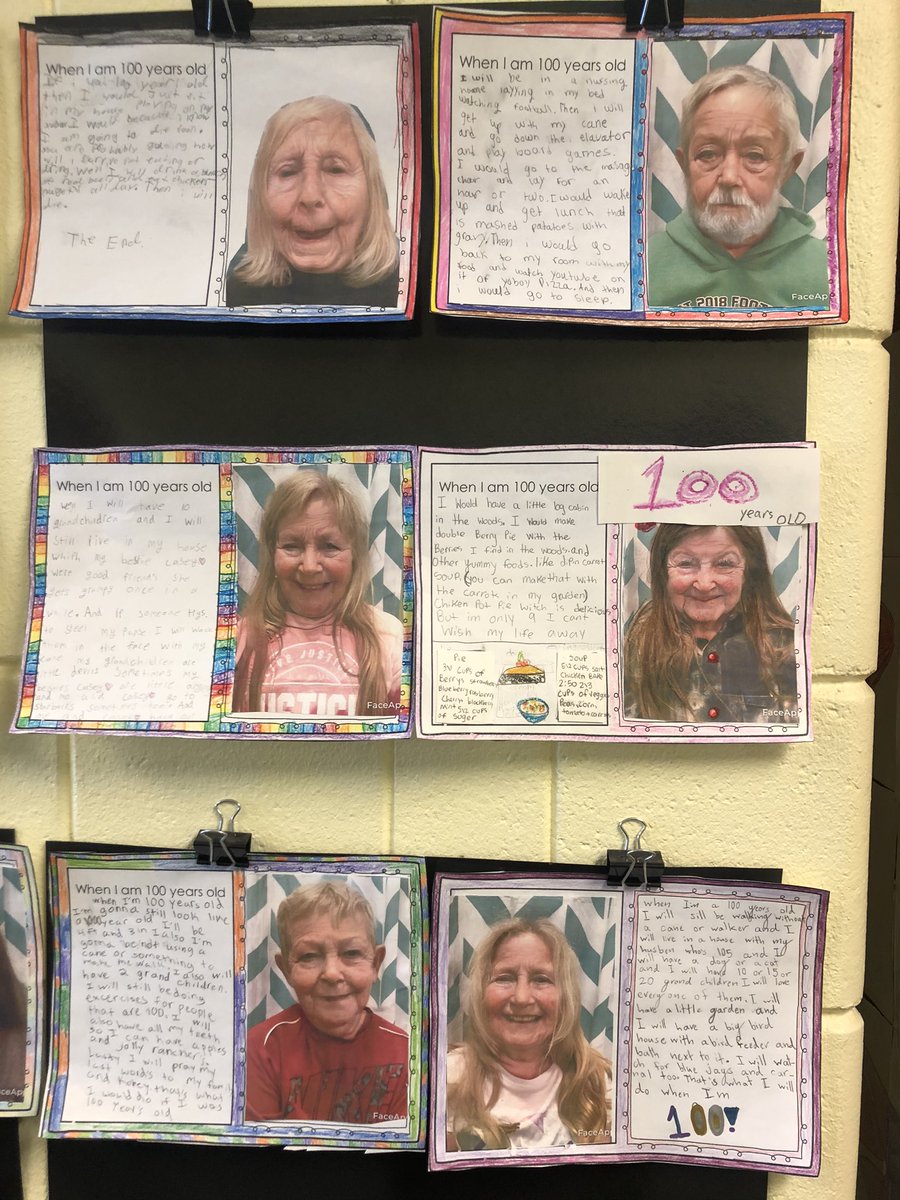 When I am 100 years old
then I would just sit
in my house
I would because I know
I am going to die soon.
you are probably guessing how
will I Carry on not eating or
all day. Then I will
die.
The End.
When I am 100 years old
I will be in a nursing
home laying in my bed
watching football. Then i will
get up with my cane
and go down the elavator
and play board games.
I would go to the
chair and lay for an
hour or two. I would wake
up and get lunch that
is mashed patatoes with
gravy. Then i would go
back to my room with my
food and watch youtube on
it of yoboy Pizza. And then
i would go to sleep.
ST 2018 FOOT
FaceAp
When I am 100 years old
Well I will have 10
grandchildren and I will
still live in my house
my bestie Casey
were good friends she
once in a
And if someone trys
to my purse I will
them in the face with my
cane my grandchildren are
the devils sometimes my
Casey
And
JUSTICE
JUSTICE
FaceAp
When I am 100 years old
100
years OLD
I would have a little log cabin
in the woods. I would make
double Berry Pie with the
Berries I find in the woods. and
Other yummy foods. like carrot
soup, (you can make that with
the carrots in my garden)
Chiken Pot Pie witch is delicious
But im only 9 I cant
Wish my life away
Pie
3 1/4 cups of
Berrys strawberry
Blueberry rasberry
cherry blackberry
mint 5 1/2 cups
of suger
soup
cups
Chicken
2:50
cups of veggies
Corn,
FaceAp
When I am 100 years old
when I'm 100 years old
I'm gonna still look like
a year old I'll be
4ft and 3 in I also I'm
gonna be indt using a
cane or something to
make me walk I also will
have 2 grand children.
I will still be doing
exercises for people
that are 100, I will
also have all my teeth
so I can have apples
and jolly rancher!
Lastly I will pray my
last words to my family
and thats what
I would do if I was
100 Years old
FaceAp
FaceAp
when I'm a 100 years old
I will sill be walking without
a cane or walker and I
will live in a house with my
husben who's 105 and I
will have a dog or a cat
and I will have 10 or 15 or
20 grand children I will love
every one of them. I will
have a little garden and
I will have a big bird
house with a bird feeder and
bath next to it. I will wat-
ch for blue jays and car-
nal too. That's what I will
do when I'm
100!